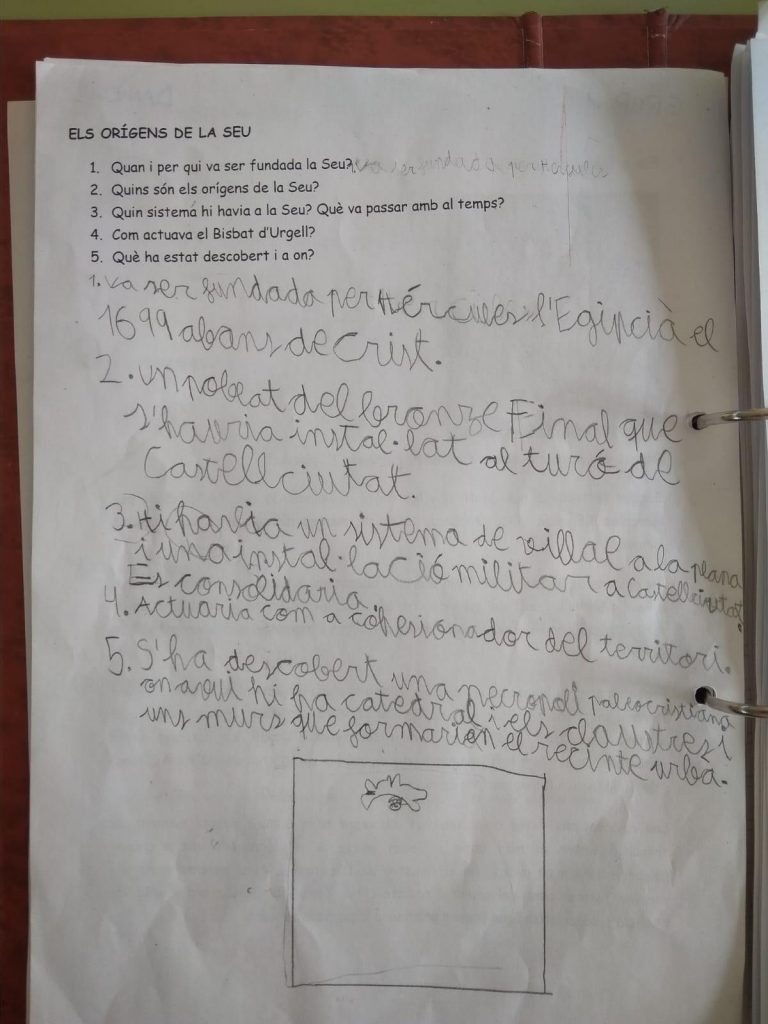 ELS ORÍGENS DE LA SEU
1. Quan i per qui va ser fundada la Seu? Va ser fundada per Hercules
2. Quins són els orígens de la Seu?
3. Quin sistema hi havia a la Seu? Què va passar amb al temps?
4. Com actuava el Bisbat d'Urgell?
5. Què ha estat descobert i a on?
1. Va ser fundada per Hércules l'Egipcià el
1699 abans de Crist.
2. un poblat del bronze Final que
s'hauria instal·lat al turó de
Castellciutat.
3. Hi havia un sistema de villae a la plana
i una instal·lació militar a Castellciutat.
Es consolidaria.
4. Actuaria com a cohesionador del territori.
5. S'ha descobert una necropoli paleocristiana
on aqui hi ha catedral i els claustres i
uns murs que formarien el recinte urba.